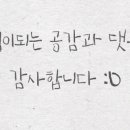 되는 공감과
감사합니다 :D